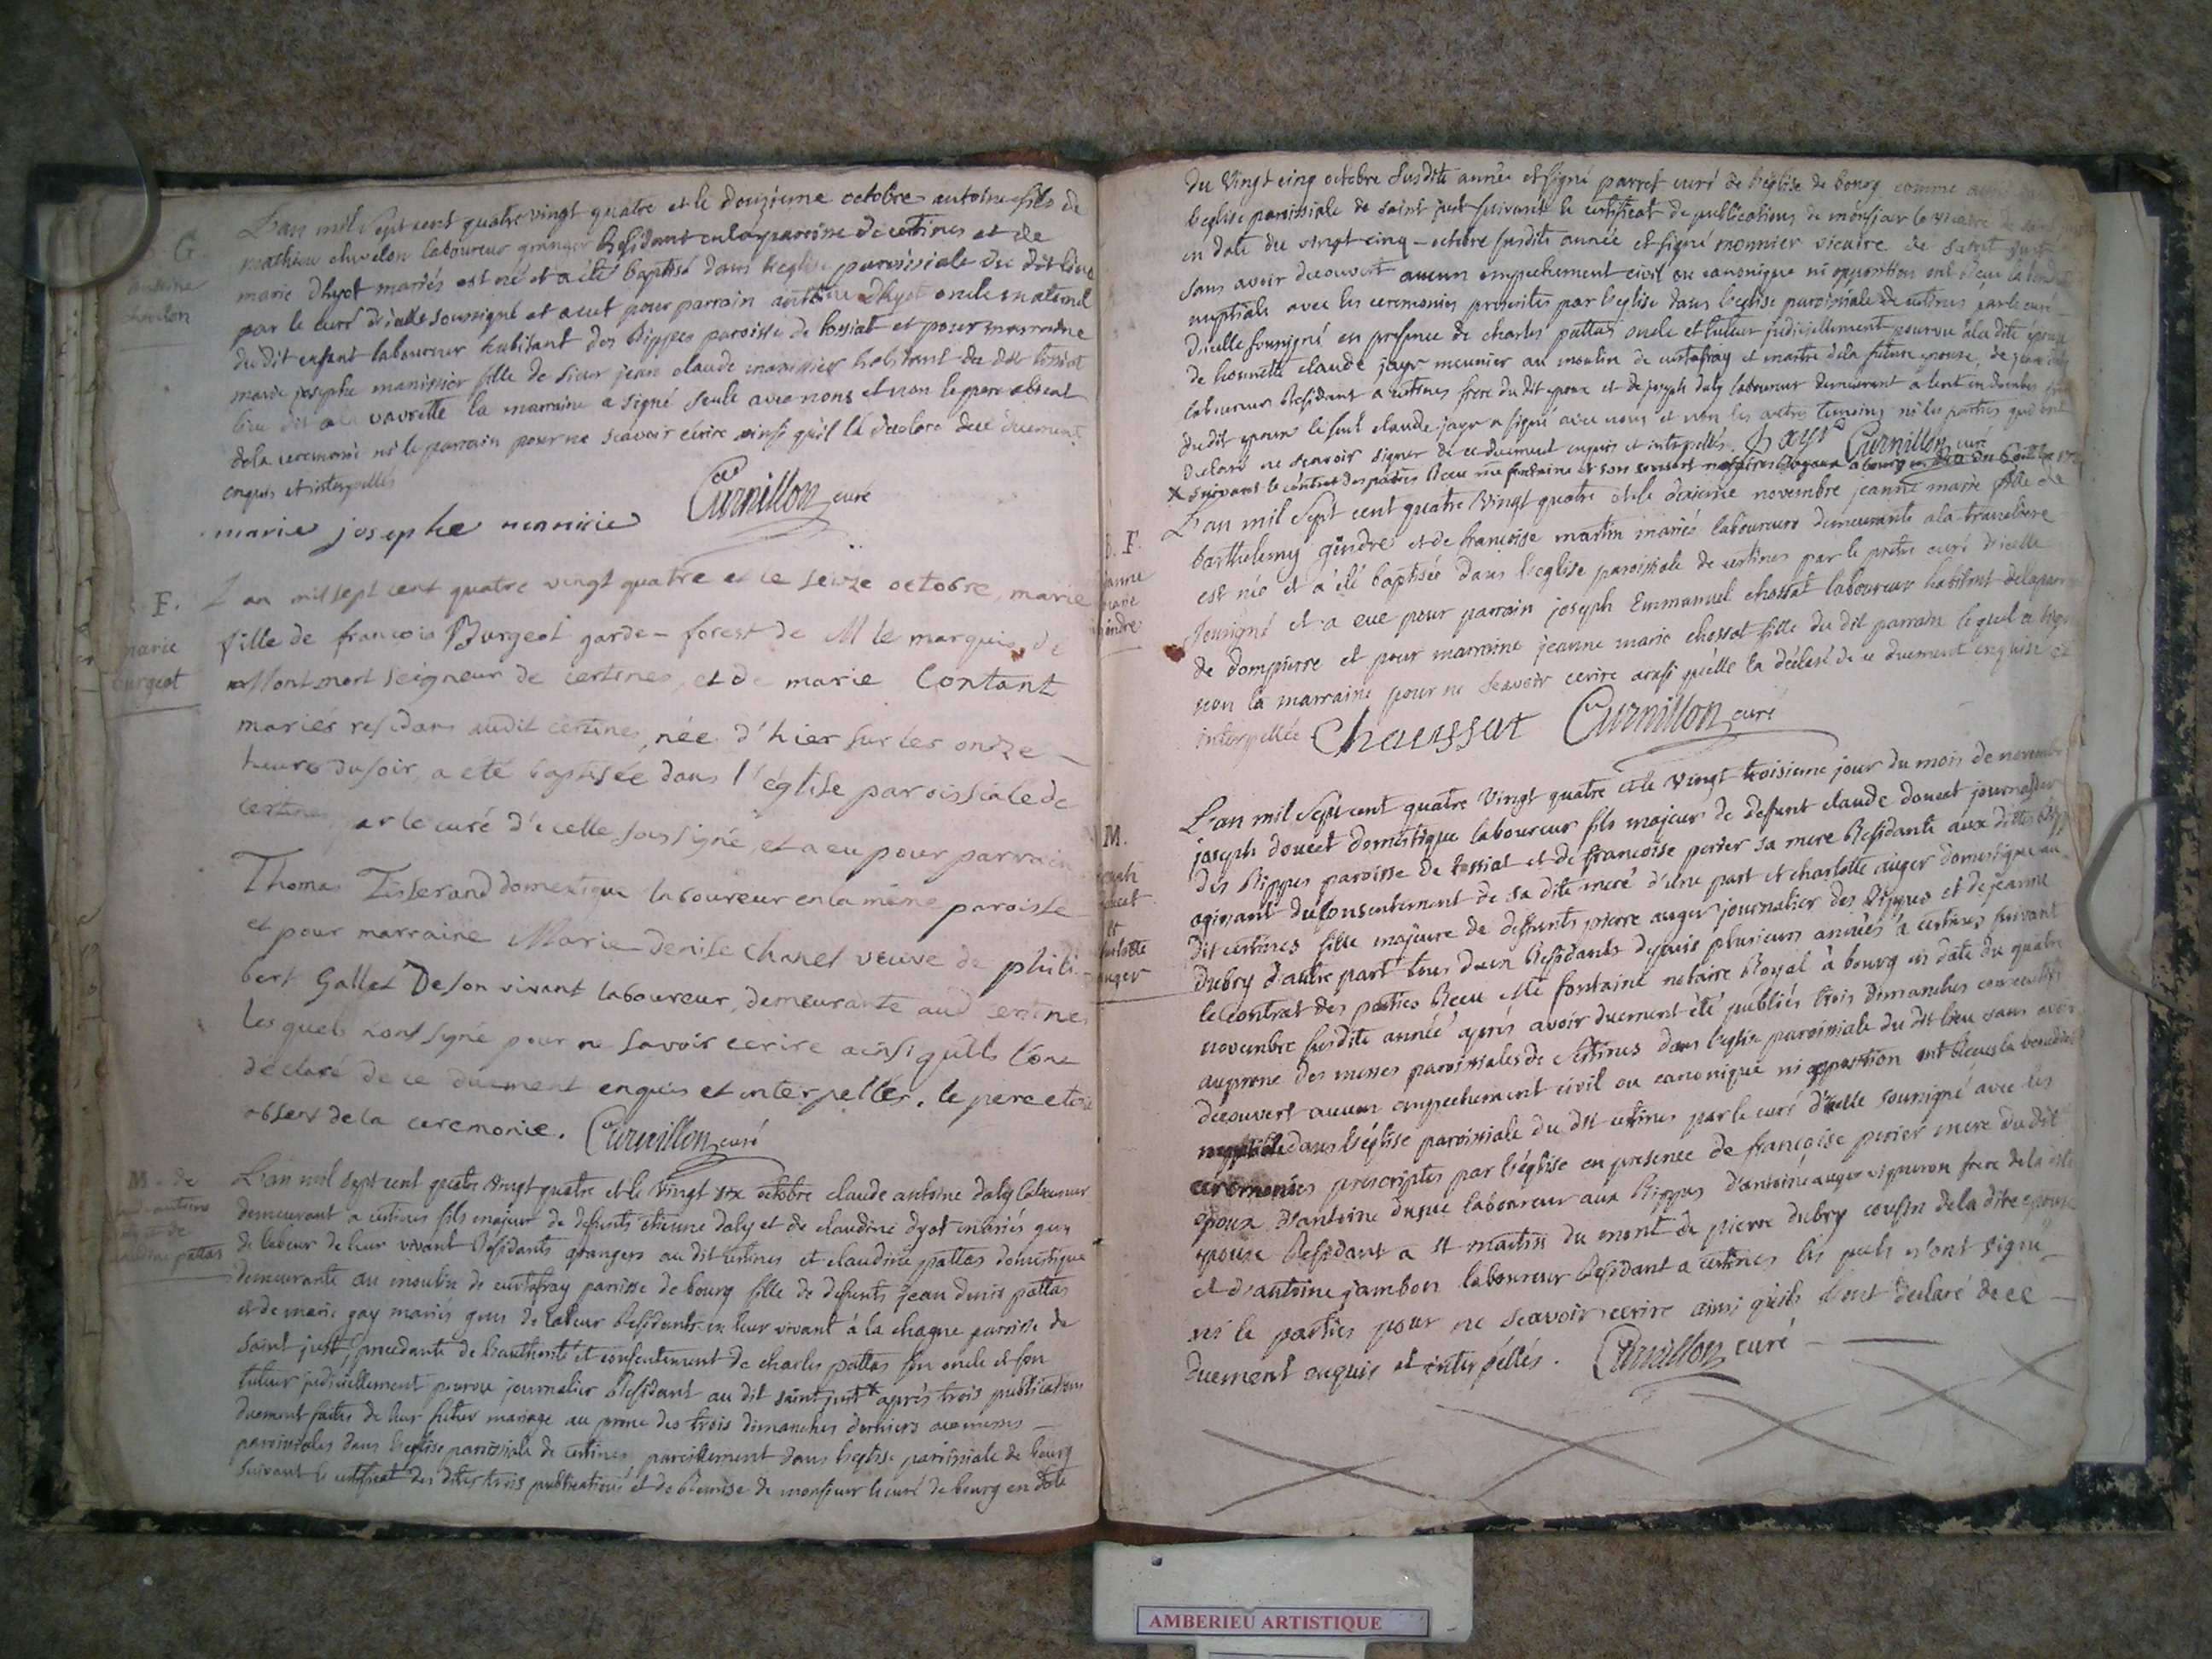 G
antoine
chevelon
L'an mil sept cent quatre vingt quatre et le douzieme octobre antoine fils de
mathieu chevelon laboureur granger Residant en la paroisse de certines et de
marie dhyot mariés est né et a été baptisé dans l'eglise paroissiale du dit lieu
par le curé d'icelle soussigné et a eut pour parrain antoine dhyot oncle maternel
du dit enfant laboureur habitant des Rippes paroisse de tossiat et pour marraine
marie josephe manissier fille de sieur jean claude manissier habitant du dit tossiat
lieu dit a la vavrette la marraine a signé seule avec nous et non le pere absent
de la ceremonie ni le parrain pour ne scavoir écrire ainsi qu'il l'a declaré de ce duement
enquis et interpellés
marie josephe manisie Curnillon curé
F.
marie
burgeot
L'an mil sept cent quatre vingt quatre et le seize octobre, marie
fille de francois Burgeot garde-forest de M le marquis de
Montmort seigneur de certines, et de marie Contant
mariés residans audit certines, née d'hier sur les onze
heures du soir, a eté baptisée dans l'église paroissiale de
certines par le curé d'icelle soussigné, et a eu pour parrain
Thomas Tisserand domestique laboureur en la même paroisse
et pour marraine Marie-denise Chanel veuve de phili-
bert Gallet De son vivant laboureur, demeurante aud certines
lesquels n'ont signé pour ne savoir ecrire ainsi qu'ils l'ont
déclaré de ce duement enquis et interpellés. le pere etoit
absent de la ceremonie. Curnillon curé
M. de
claude antoine
daly et de
claudine pattas
L'an mil sept cent quatre vingt quatre et le vingt six octobre claude antoine daly laboureur
demeurant a certines fils majeur de defunts etienne daly et de claudine dyot mariés gens
de labeur de leur vivant Residants grangers au dit certines et claudine pattas domestique
demeurante au moulin de curtafray parrisse de bourg fille de defunts jean denis pattas
et de marie gay mariés gens de labeur Residants en leur vivant à la chagne parrisse de
saint just, procedante de l'authorité et consentement de charles pattas son oncle et son
tuteur judiciellement pourvu journalier Residant au dit saint just x après trois publications
duement faites de leur futur mariage au prone des trois dimanches derniers aux messes
paroissiales dans l'eglise paroissiale de certines, pareillement dans l'eglise paroissiale de bourg
suivant le certificat des dites trois publications et de Remise de monsieur le curé de bourg en date
du vingt cinq octobre susdite année et signé parret curé de l'église de bourg comme aussi dans
l'eglise paroissiale de saint just suivant le certificat de publications de monsieur le vicaire de saint just
en date du vingt cinq octobre susdite année et signé monnier vicaire de saint just
sans avoir decouvert aucun empechement civil ou canonique ni opposition ont Recu la
nuptiale avec les ceremonies prescrites par l'eglise dans l'eglise paroissiale de certines par le curé
d'icelle soussigné en presence de charles pattas oncle et tuteur judiciellement pourvu a la dite épouse
de honnette claude jayr meunier au moulin de curtafray et maitre de la future epouse, de
laboureur Residant a certines frere du dit epoux et de joseph daly laboureur demeurant a
du dit epoux le seul claude jayr a signé avec nous et non les autres temoins ni les parties qui ont
declaré ne scavoir signer de ce duement enquis et interpellés. Jayr Curnillon curé
x suivant le contrat des parties Recu me fontaine et son consort notaires Royaux a bourg en date du
B. F.
jeanne
marie
gindre
L'an mil sept cent quatre vingt quatre et le deuxieme novembre jeanne marie fille de
barthelemy gindre et de francoise martin mariés laboureurs demeurants a la tranclière
est née et a été baptisée dans l'eglise paroissiale de certines par le pretre curé d'icelle
soussigné et a eue pour parrain joseph Emmanuel chossat laboureur habitant de la
de dompierre et pour marraine jeanne marie chossat fille du dit parrain lequel a signé
non la marraine pour ne scavoir ecrire ainsi qu'elle l'a déclaré de ce duement enquise et
interpellée Chaussat Curnillon curé
M.
joseph
doucet
et
charlotte
auger
L'an mil sept cent quatre vingt quatre et le vingt troisieme jour du mois de novembre
joseph doucet domestique laboureur fils majeur de defunt claude doucet journalier
des Rippes paroisse de tossiat et de francoise perier sa mere Residante aux dittes Rippes
agissant du consentement de sa dite mere d'une part et charlotte auger domestique au
dit certines fille majeure de deffunts pierre auger journalier des Rippes et de jeanne
dubry d'autre part tous deux Residants depuis plusieurs années a certines, suivant
le contrat des parties Recu Me fontaine notaire Royal à bourg en date du quatre
novembre susdite année après avoir duement été publiés trois dimanches consecutifs
au prone des messes paroissiales de Certines dans l'eglise paroissiale du dit lieu sans avoir
decouvert aucun empechement civil ou canonique ni opposition ont Recus la benediction
nuptiale dans l'église paroissiale du dit certines par le curé d'icelle soussigné avec les
ceremonies prescriptes par l'église en presence de francoise perier mere du dit
epoux d'antoine laboureur aux Rippes d'antoine auger vigneron frere de la dite
epouse Residant a st martin du mont de pierre dubry cousin de la dite epouse
et d'antoine jambon laboureur Residant a certines les quels n'ont signé
ni le parties pour ne scavoir ecrire ainsi qu'ils l'ont declaré de ce
duement enquis et interpéllés. Curnillon curé
AMBERIEU ARTISTIQUE